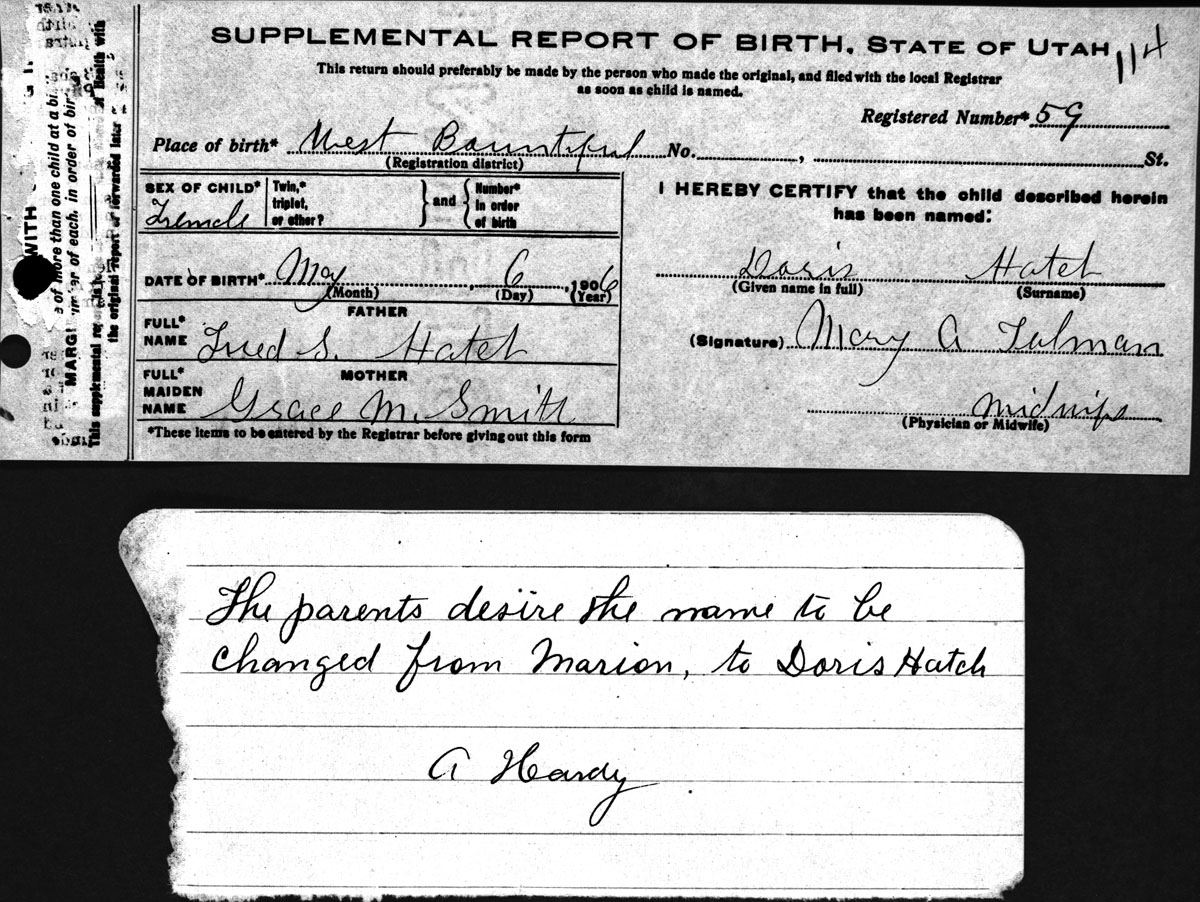 SUPPLEMENTAL REPORT OF BIRTH, STATE OF UTAH
114
This return should preferably be made by the person who made the original, and filed with the local Registrar
as soon as child is named.
Registered Number* 59
Place of birth* West Bountiful No. , St.
(Registration district)
SEX OF CHILD*
Female
Twin,*
triplet,
or other?
and
Number*
in order
of birth
I HEREBY CERTIFY that the child described herein
has been named:
DATE OF BIRTH* May , 6 , 1906
(Month) (Day) (Year)
Doris Hatch
(Given name in full) (Surname)
FATHER
FULL*
NAME Fred S. Hatch
(Signature) Mary A Tolman
MOTHER
FULL*
MAIDEN
NAME Grace M. Smith
Midwife
(Physician or Midwife)
*These items to be entered by the Registrar before giving out this form
WITH
of more than one child at a
of each, in order of
MARG
This supplemental
the original report forwarded later
of Health with
The parents desire the name to be
changed from Marion, to Doris Hatch
A Hardy